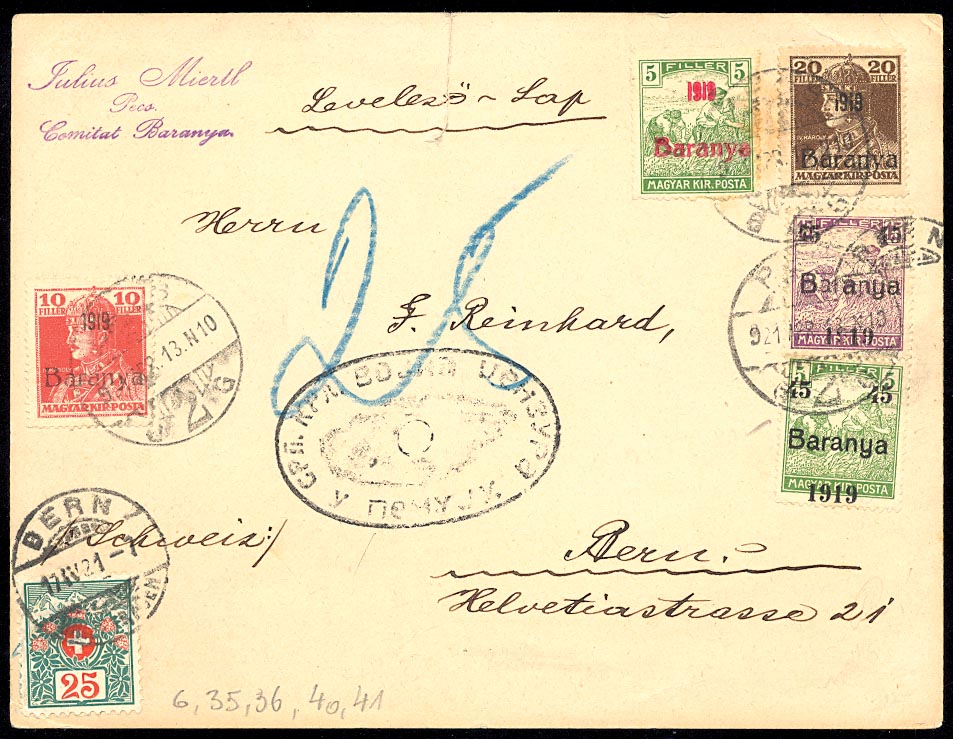 Julius Miertl
Pecs.
Comitat Baranya.
Levelező-Lap
5 FILLÉR 5
1919
Baranya
MAGYAR KIR. POSTA
20 20
FILLÉR FILLÉR
1919
Baranya
MAGYAR KIR. POSTA
Herrn
25
45 45
Baranya
1919
MAGYAR KIR. POSTA
10 10
FILLÉR FILLÉR
1919
Baranya
MAGYAR KIR. POSTA
F. Reinhard,
45 45
Baranya
MAGYAR KIR. POSTA
1919
БОЈНА ЦЕНЗУРА
У ПЕЧУЈУ.
BERN 7
17.IV.21-7
/Schweiz/
Bern.
Helvetiastrasse 21
25
6, 35, 36, 40, 41